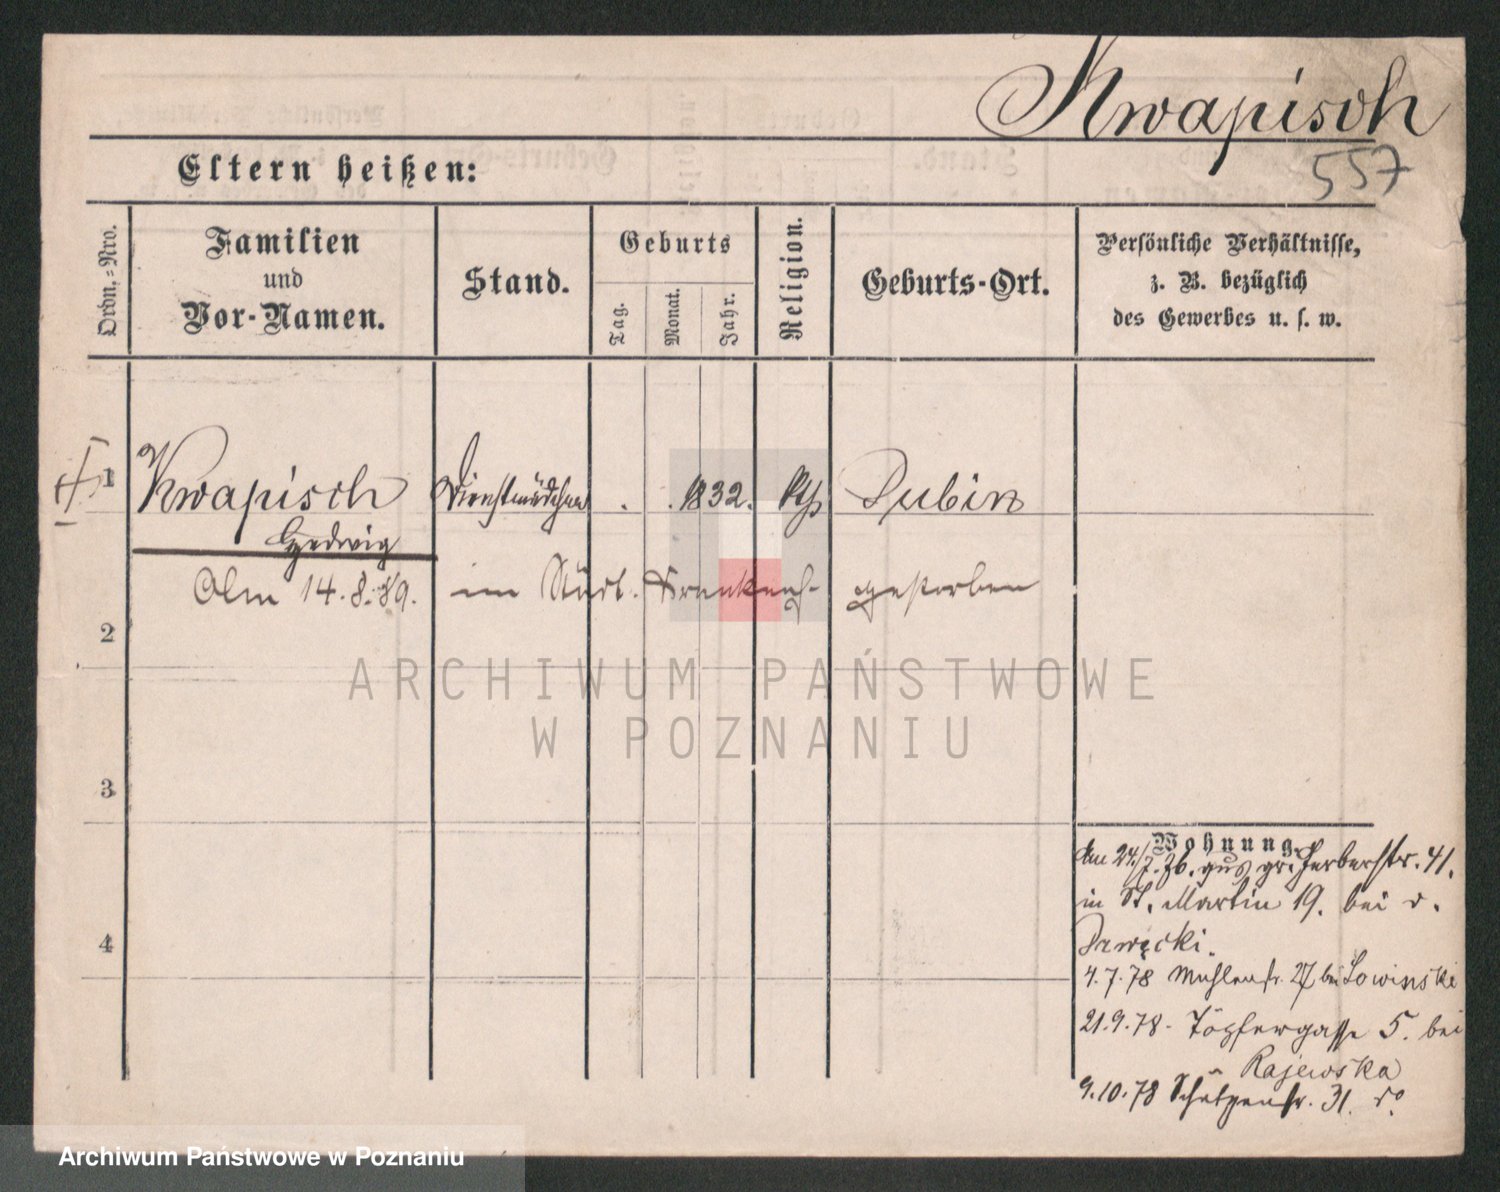 Kwapisch
557
Eltern heißen:
Ordn.-Nro.
Familien
und
Vor-Namen.
Stand.
Geburts
Tag.
Monat.
Jahr.
Religion.
Geburts-Ort.
Persönliche Verhältnisse,
z. B. bezüglich
des Gewerbes u. s. w.
1 Kwapisch Dienstmädchen . . 1832. kth Dubin
Hedwig
Am 14.8.89. im Städt. Krankenh. gestorben
2
ARCHIWUM PAŃSTWOWE
W POZNANIU
3
Wohnung.
am 24/7. 76. aus gr. Gerberstr. 41.
in St. Martin 19. bei
4
4.7.78 Mühlenstr. 27 bei Lowinski
21.9.78. Töpfergasse 5. bei
Rajewska
9.10.78 Schützenstr. 31. do
Archiwum Państwowe w Poznaniu